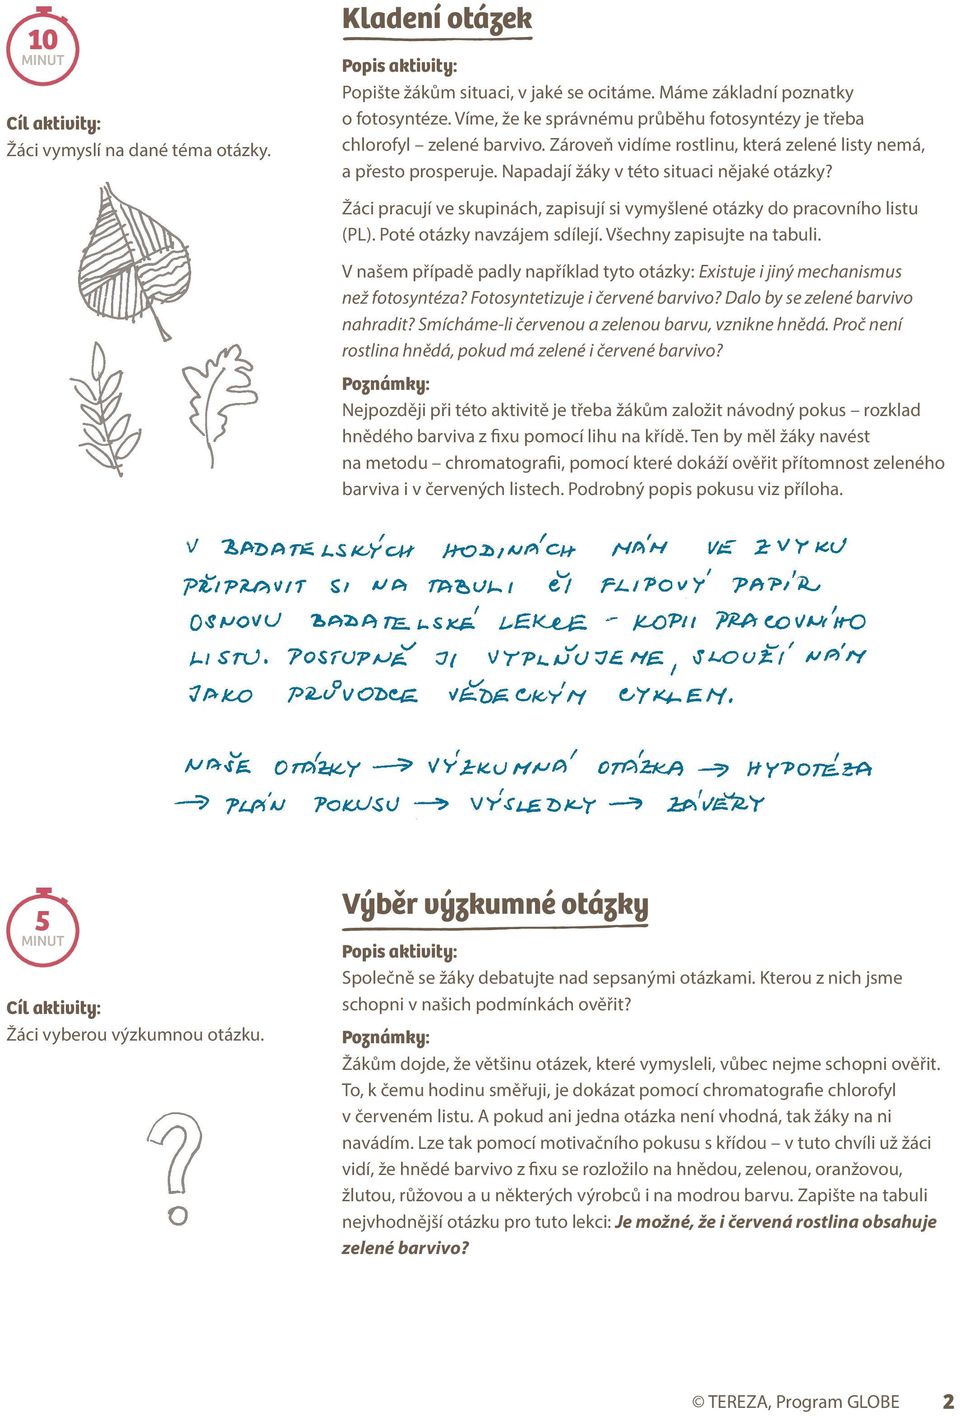 10
MINUT
Cíl aktivity:
Žáci vymyslí na dané téma otázky.
Kladení otázek
Popis aktivity:
Popište žákům situaci, v jaké se ocitáme. Máme základní poznatky
o fotosyntéze. Víme, že ke správnému průběhu fotosyntézy je třeba
chlorofyl – zelené barvivo. Zároveň vidíme rostlinu, která zelené listy nemá,
a přesto prosperuje. Napadají žáky v této situaci nějaké otázky?
Žáci pracují ve skupinách, zapisují si vymyšlené otázky do pracovního listu
(PL). Poté otázky navzájem sdílejí. Všechny zapisujte na tabuli.
V našem případě padly například tyto otázky: Existuje i jiný mechanismus
než fotosyntéza? Fotosyntetizuje i červené barvivo? Dalo by se zelené barvivo
nahradit? Smícháme-li červenou a zelenou barvu, vznikne hnědá. Proč není
rostlina hnědá, pokud má zelené i červené barvivo?
Poznámky:
Nejpozději při této aktivitě je třeba žákům založit návodný pokus – rozklad
hnědého barviva z fixu pomocí lihu na křídě. Ten by měl žáky navést
na metodu – chromatografii, pomocí které dokáží ověřit přítomnost zeleného
barviva i v červených listech. Podrobný popis pokusu viz příloha.
V BADATELSKÝCH HODINÁCH MÁM VE ZVYKU
PŘIPRAVIT SI NA TABULI ČI FLIPOVÝ PAPÍR
OSNOVU BADATELSKÉ LEKCE – KOPII PRACOVNÍHO
LISTU. POSTUPNĚ JI VYPLŇUJEME, SLOUŽÍ NÁM
JAKO PRŮVODCE VĚDECKÝM CYKLEM.
NAŠE OTÁZKY → VÝZKUMNÁ OTÁZKA → HYPOTÉZA
→ PLÁN POKUSU → VÝSLEDKY → ZÁVĚRY
5
MINUT
Cíl aktivity:
Žáci vyberou výzkumnou otázku.
Výběr výzkumné otázky
Popis aktivity:
Společně se žáky debatujte nad sepsanými otázkami. Kterou z nich jsme
schopni v našich podmínkách ověřit?
Poznámky:
Žákům dojde, že většinu otázek, které vymysleli, vůbec nejme schopni ověřit.
To, k čemu hodinu směřuji, je dokázat pomocí chromatografie chlorofyl
v červeném listu. A pokud ani jedna otázka není vhodná, tak žáky na ni
navádím. Lze tak pomocí motivačního pokusu s křídou – v tuto chvíli už žáci
vidí, že hnědé barvivo z fixu se rozložilo na hnědou, zelenou, oranžovou,
žlutou, růžovou a u některých výrobců i na modrou barvu. Zapište na tabuli
nejvhodnější otázku pro tuto lekci: Je možné, že i červená rostlina obsahuje
zelené barvivo?
© TEREZA, Program GLOBE 2